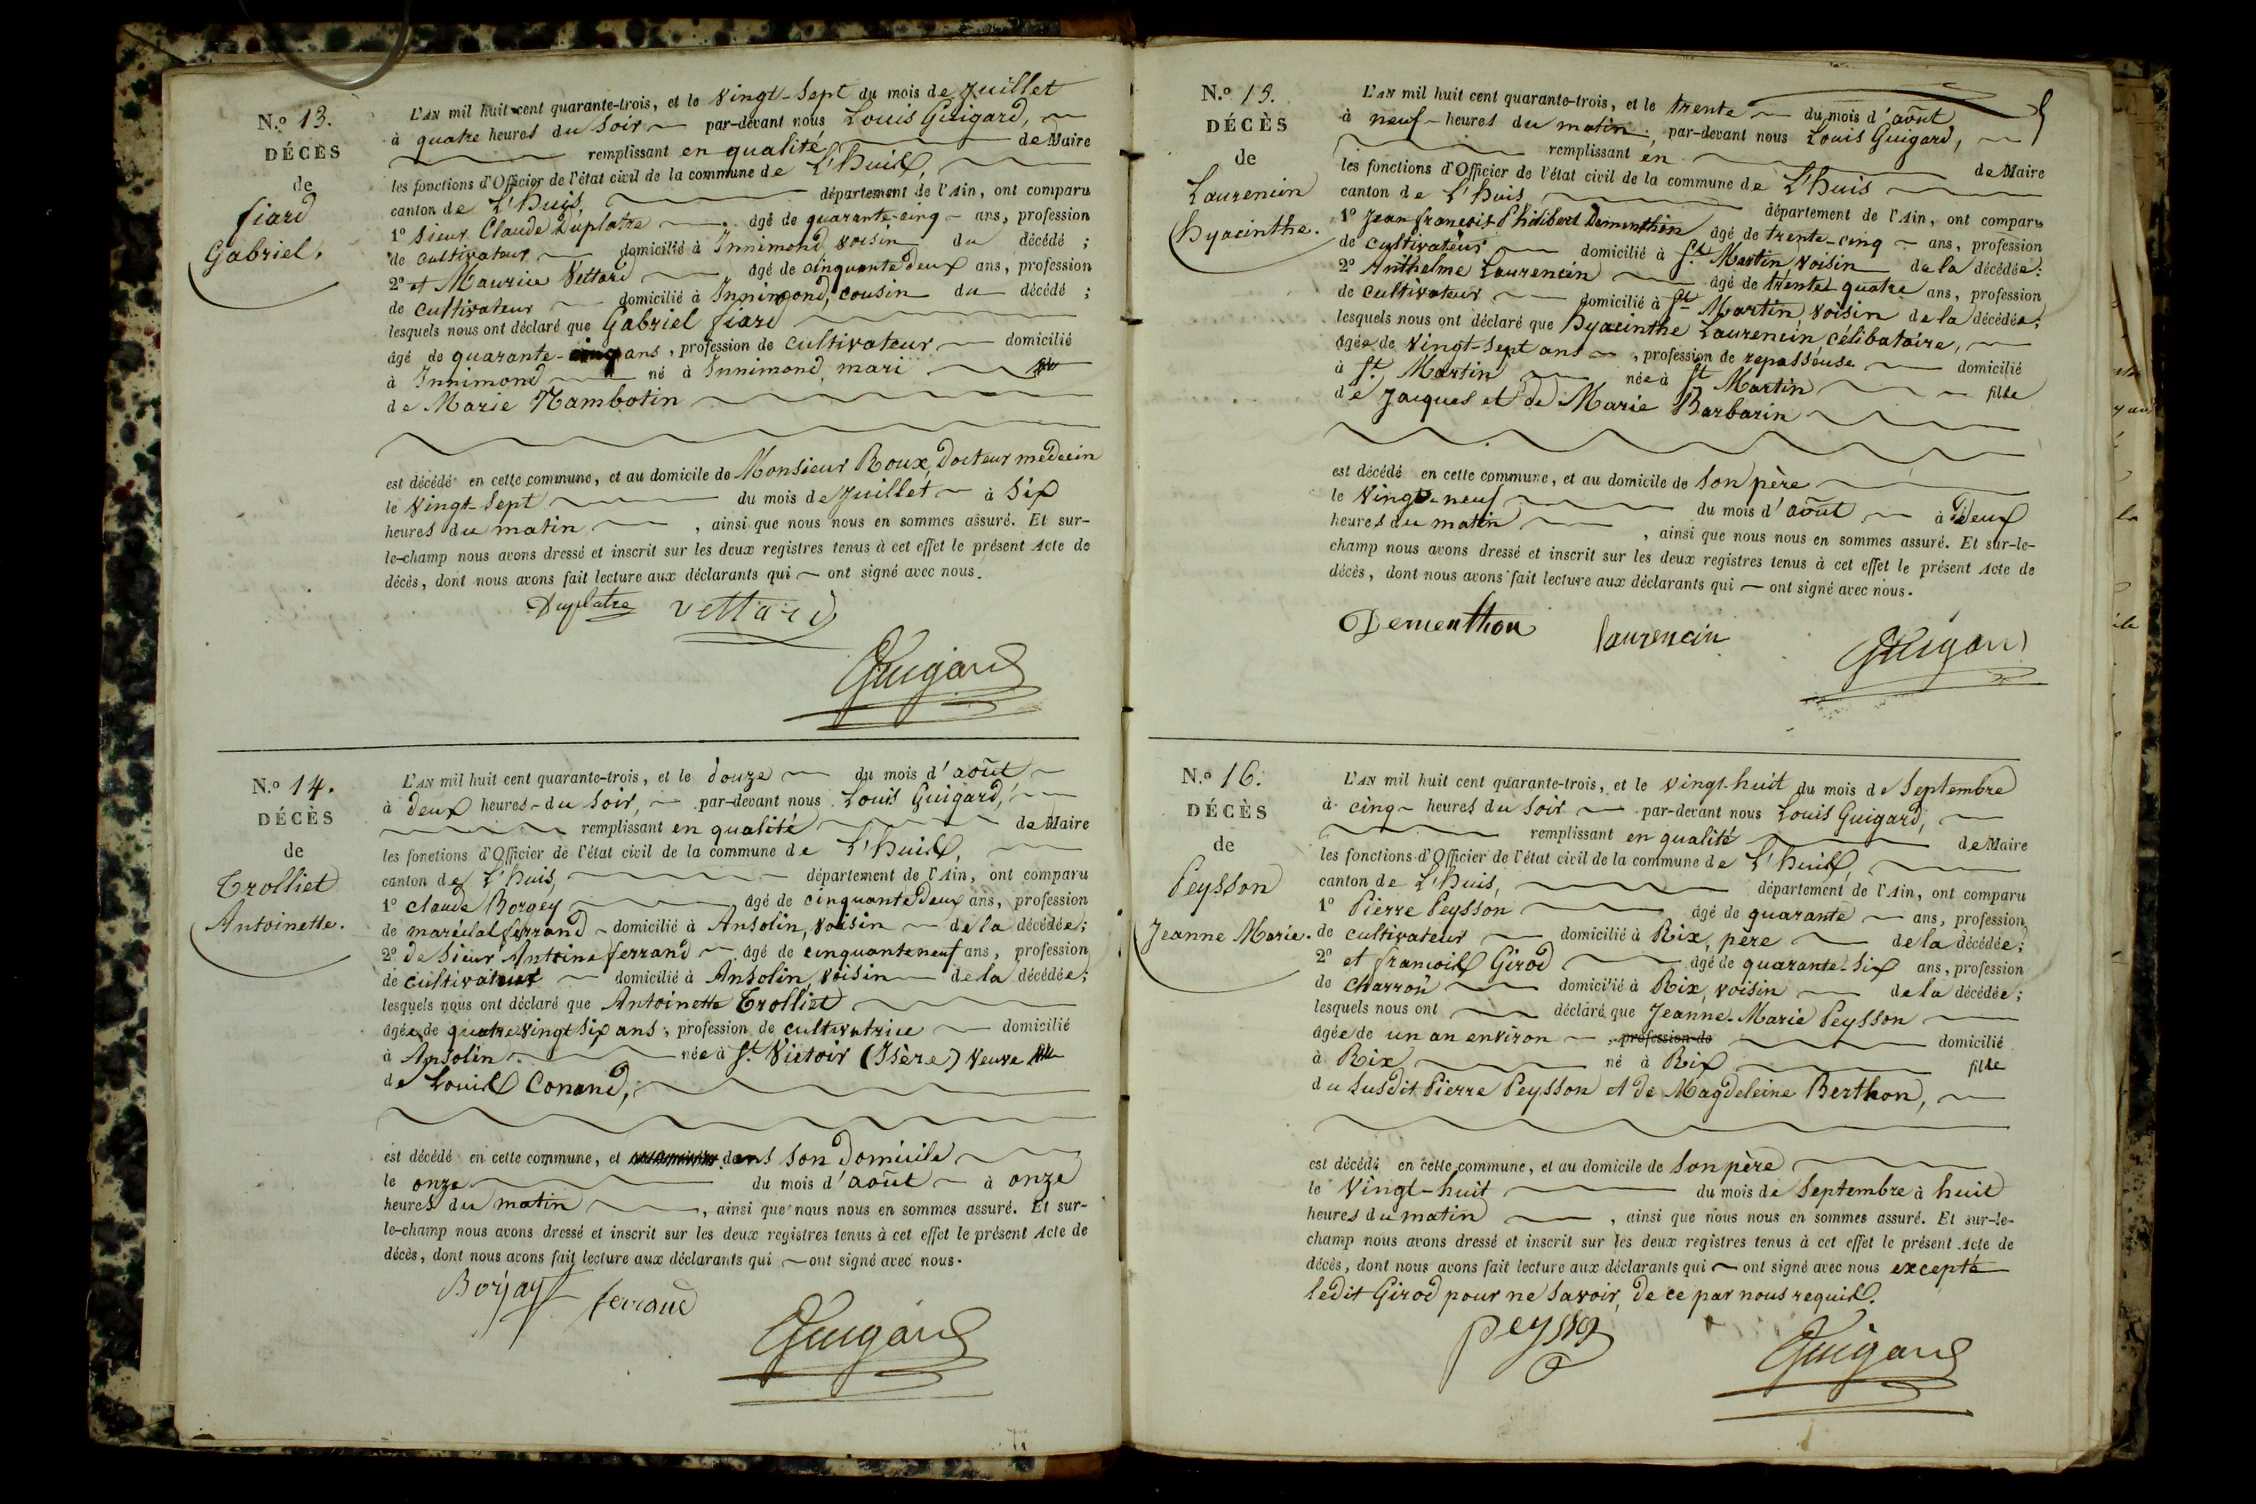 N.º 13.
DÉCÈS
de
fiard
Gabriel.
L'AN mil huit cent quarante-trois, et le vingt-sept du mois de juillet
à quatre heures du soir par-devant nous Louis Guigard,
remplissant en qualité de Maire
les fonctions d'Officier de l'état civil de la commune de L'huis,
canton de L'huis, département de l'Ain, ont comparu
1º sieur Claude Duplatre âgé de quarante-cinq ans, profession
de cultivateur domicilié à Innimond voisin du décédé ;
2º et Maurice Vettard âgé de cinquante deux ans, profession
de cultivateur domicilié à Innimond, cousin du décédé ;
lesquels nous ont déclaré que Gabriel fiard
âgé de quarante-cinq ans, profession de cultivateur domicilié
à Innimond né à Innimond, mari
de Marie Nambotin
est décédé en cette commune, et au domicile de Monsieur Roux, Docteur médecin
le vingt-sept du mois de juillet à six
heures du matin, ainsi que nous nous en sommes assuré. Et sur-
le-champ nous avons dressé et inscrit sur les deux registres tenus à cet effet le présent Acte de
décès, dont nous avons fait lecture aux déclarants qui ont signé avec nous.
Duplatre vettard
Guigard
N.º 14.
DÉCÈS
de
Trolliet
Antoinette.
L'AN mil huit cent quarante-trois, et le douze du mois d'août
à deux heures du soir, par-devant nous Louis Guigard,
remplissant en qualité de Maire
les fonctions d'Officier de l'état civil de la commune de L'huis,
canton de L'huis, département de l'Ain, ont comparu
1º claude Borgey âgé de cinquante deux ans, profession
de maréchal ferrand domicilié à Ansolin, voisin de la décédée ;
2º de sieur Antoine ferrand âgé de cinquante neuf ans, profession
de cultivateur domicilié à Ansolin, voisin de la décédée ;
lesquels nous ont déclaré que Antoinette Trolliet
âgée de quatre vingt six ans, profession de cultivatrice domicilié
à Ansolin née à St. Victoir (Isère) veuve
de Louis Conand,
est décédé en cette commune, et dans son domicile
le onze du mois d'août à onze
heures du matin, ainsi que nous nous en sommes assuré. Et sur-
le-champ nous avons dressé et inscrit sur les deux registres tenus à cet effet le présent Acte de
décès, dont nous avons fait lecture aux déclarants qui ont signé avec nous.
Borjay ferrand
Guigard
N.º 15.
DÉCÈS
de
Laurencin
hyacinthe.
L'AN mil huit cent quarante-trois, et le trente du mois d'août
à neuf heures du matin, par-devant nous Louis Guigard,
remplissant en de Maire
les fonctions d'Officier de l'état civil de la commune de L'huis
canton de L'huis département de l'Ain, ont comparu
1º Jean françois Philibert Dementhon âgé de trente-cinq ans, profession
de cultivateur domicilié à St. Martin voisin de la décédée ;
2º Anthelme Laurencin âgé de trente quatre ans, profession
de cultivateur domicilié à St. Martin, voisin de la décédée ;
lesquels nous ont déclaré que hyacinthe Laurencin, célibataire,
âgée de vingt-sept ans, profession de repasseuse domicilié
à St. Martin née à St. Martin fille
de Jacques et de Marie Barbarin
est décédé en cette commune, et au domicile de son père
le vingt-neuf du mois d'août à deux
heures du matin, ainsi que nous nous en sommes assuré. Et sur-le-
champ nous avons dressé et inscrit sur les deux registres tenus à cet effet le présent Acte de
décès, dont nous avons fait lecture aux déclarants qui ont signé avec nous.
Dementhon laurencin
Guigard
N.º 16.
DÉCÈS
de
Peysson
Jeanne Marie.
L'AN mil huit cent quarante-trois, et le vingt-huit du mois de septembre
à cinq heures du soir par-devant nous Louis Guigard,
remplissant en qualité de Maire
les fonctions d'Officier de l'état civil de la commune de L'huis,
canton de L'huis, département de l'Ain, ont comparu
1º Pierre Peysson âgé de quarante ans, profession
de cultivateur domicilié à Rix, père de la décédée ;
2º et françois Girod âgé de quarante-six ans, profession
de charron domicilié à Rix, voisin de la décédée ;
lesquels nous ont déclaré que Jeanne-Marie Peysson
âgée de un an environ, profession de domicilié
à Rix né à Rix fille
du susdit Pierre Peysson et de Magdeleine Berthon,
est décédé en cette commune, et au domicile de son père
le vingt-huit du mois de septembre à huit
heures du matin, ainsi que nous nous en sommes assuré. Et sur-le-
champ nous avons dressé et inscrit sur les deux registres tenus à cet effet le présent Acte de
décès, dont nous avons fait lecture aux déclarants qui ont signé avec nous excepté
ledit Girod pour ne savoir, de ce par nous requis.
peysson
Guigard